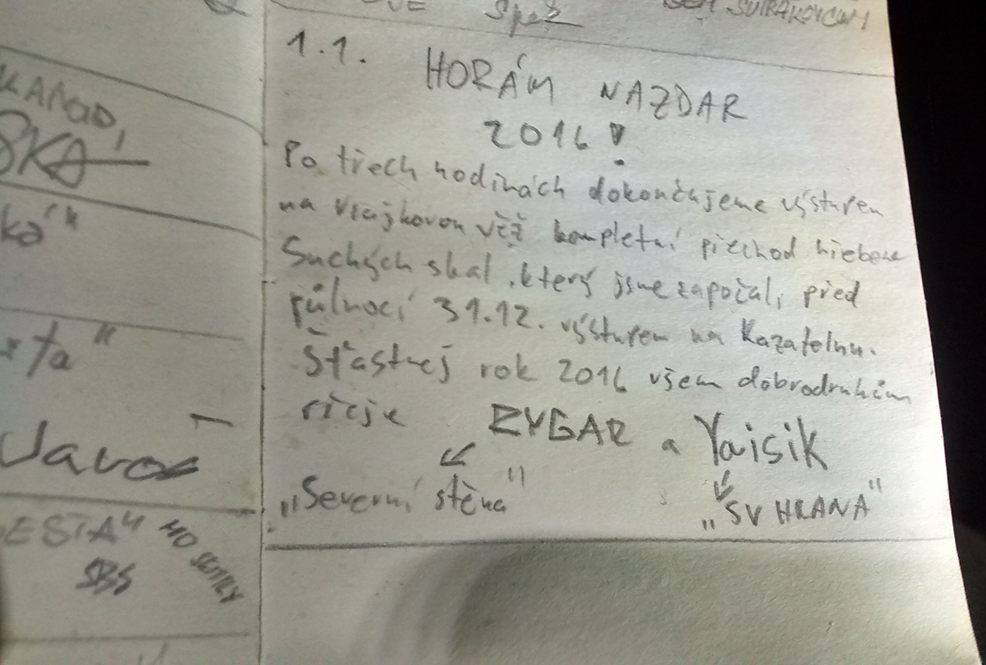 1.1. HORÁM NAZDAR
2016!
Po třech hodinách dokončujeme výstupem
na Vlajkovou věž kompletní přechod hřebene
Suchých skal, který jsme započali před
půlnocí 31.12. výstupem na Kazatelnu.
Šťastnej rok 2016 všem dobrodruhům
přeje RYGAR a Yaisik
"Severní stěna" "SV HRANA"
Javor
ESTA" HO SEMILY
SBS